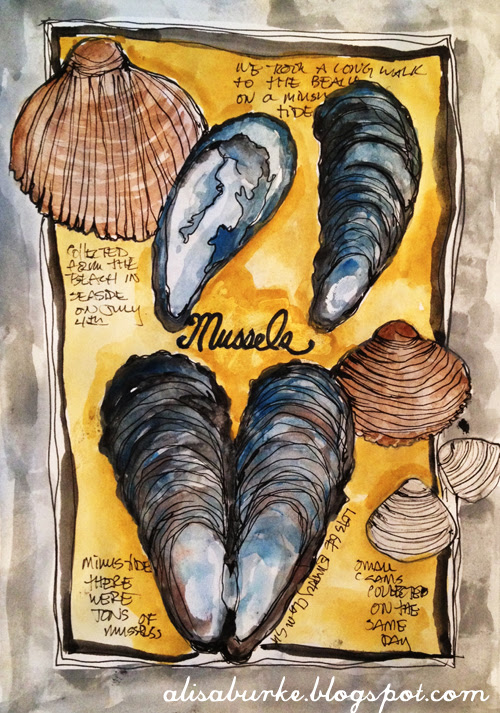 WE TOOK A LONG WALK
TO THE BEACH
ON A MINUS
TIDE
COLLECTED
FROM THE
BEACH IN
SEASIDE
ON JULY
4th
Mussels
LOTS OF
MINUS TIDE
THERE
WERE
TONS OF
MUSSELS
SMALL
CLAMS
COLLECTED
ON THE
SAME
DAY
alisaburke.blogspot.com